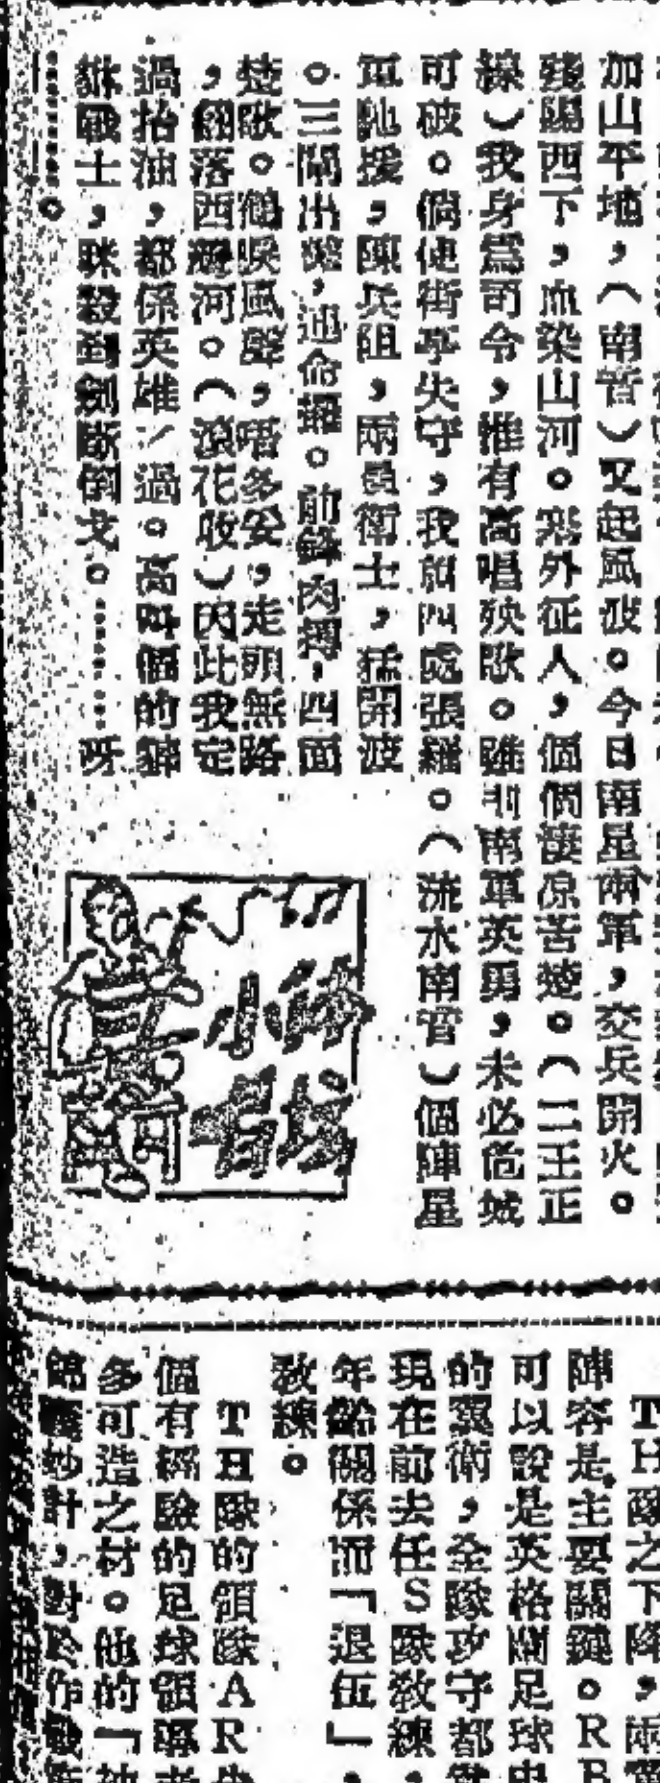 加山平地，（南音）又起風波。今日南星兩軍，交兵開火。
殘陽西下，血染山河。塞外征人，個個淒凉苦楚。（二王正
線）我身爲司令，惟有高唱殃歌。雖則南軍英勇，未必危城
可破。倘使街亭失守，我就四處張羅。（流水南音）個陣星
軍馳援，陳兵阻，兩員衛士，猛開波
。三關出擊，迅命攞。前鋒肉搏，四面
楚歌。鶴唳風聲，唔多妥，走頭無路
，翻落西灣河。（滾花收）因此我定
過抬油，都係英雄／過。高叫個的
戰士，咪殺到劍斷倒戈。………呀
………。
小
音
TH隊之下降，兩
陣容是主要關鍵。RB
可以說是英格蘭足球
的翼衛，全隊攻守都
現在前去任S隊教練，
年齡關係而「退伍」，
教練。
TH隊的領隊AR
個有經驗的足球領導者
多可造之材。他的「
錦囊妙計，對於作戰